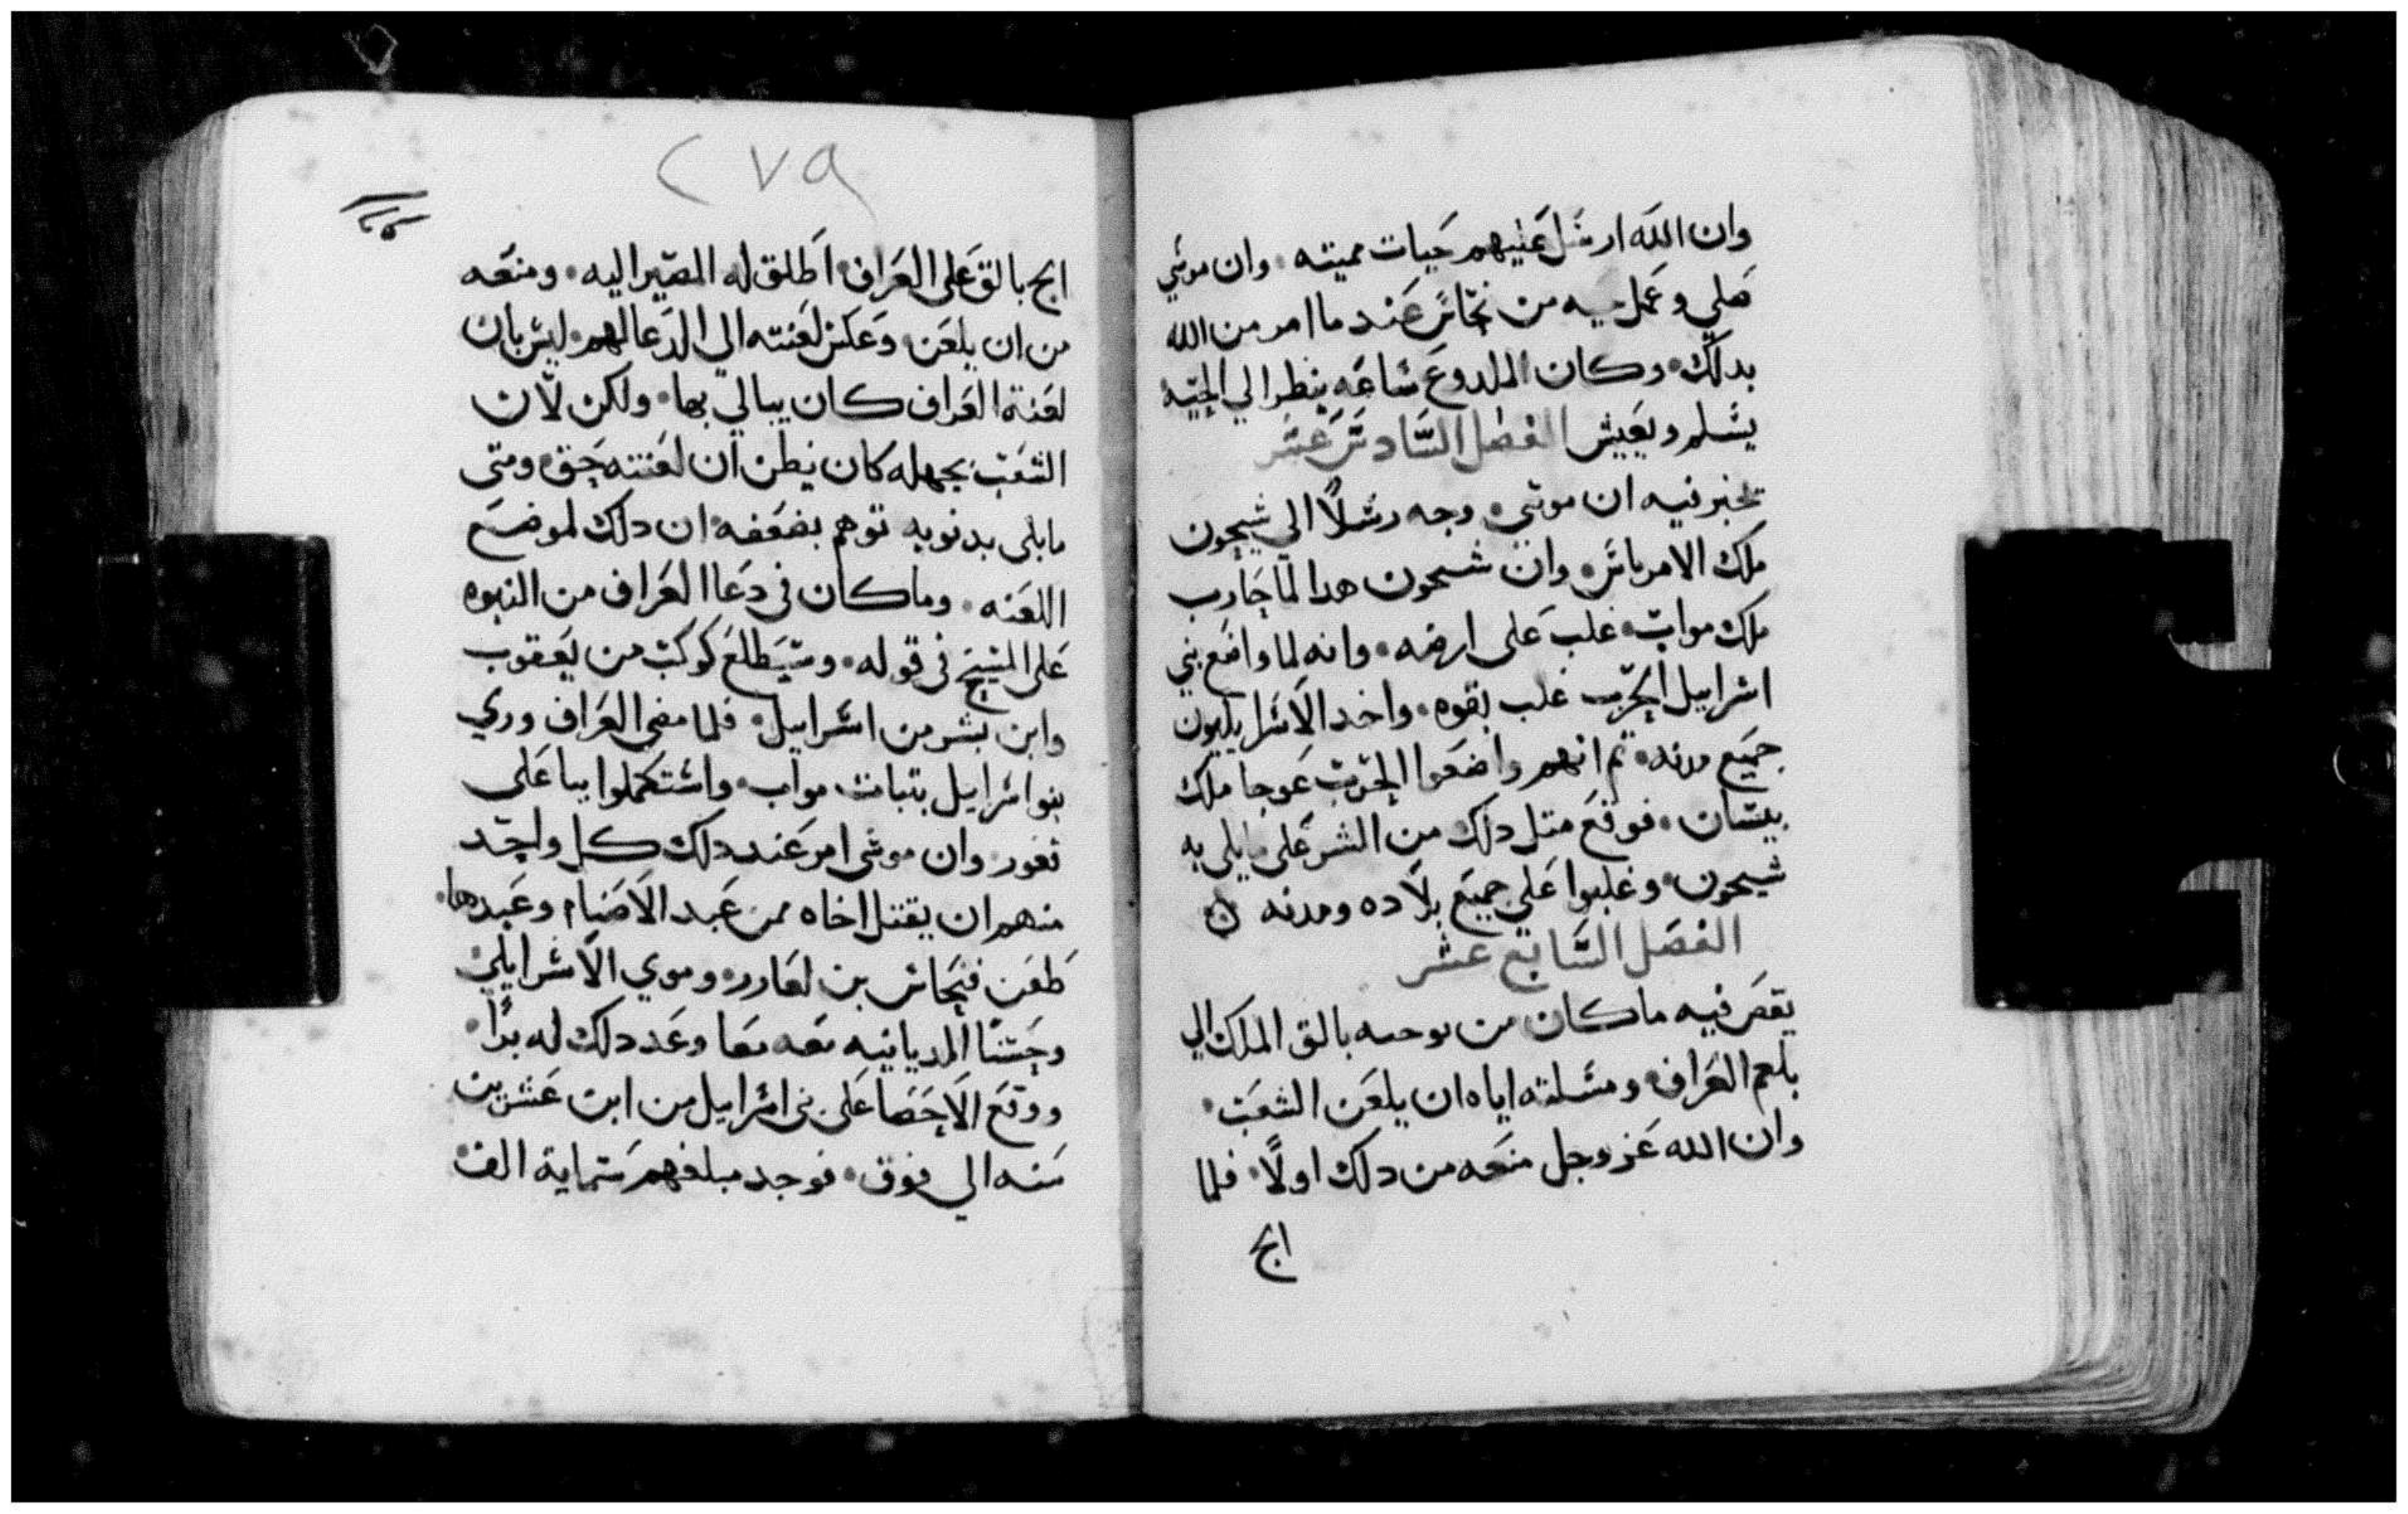 وان الله ارسل عليهم حيات مميته۰ وان موسي
صلي وعمل حيه من نحاس عند ما امر من الله
بدلك۰ وكان الملدوع ساعه ينظر الي الحيه
يسلم ويعيش الفصل السادس عشر
تخبر فيه ان موسي۰ وجه رسلاً الي شيحون
ملك الامر ناس۰ وان شيحون هدا لما حارب
ملك مواب۰ غلب على ارضه۰ وانه لما واضع بني
اسراييل الحرب غلب بقوه۰ واخد الاسراييليون
جميع مدنه۰ تم انهم واضعوا الحرب عوجا ملك
بيسان۰ فوقع متل دلك من الشر على ما بلي به
شيحون۰ وغلبوا علي جميع بلاده ومدنه ۞
الفصل السابع عشر
يقص فيه ما كان من توجيه بالق الملك الي
بلعم العراف۰ ومسلته اياه ان يلعن الشعب۰
وان الله عز وجل منعه من دلك اولاً۰ فلما
الح
٢٧٩
الح بالق على العراف۰ اطلق له المصير اليه۰ ومنعه
من ان يلعن۰ وعكس لعنته الي الدعا لهم۰ ليس بان
لعنة العراف كان يبالي بها۰ ولكن لان
الشعب بجهله كان يظن ان لعنته حق۰ ومتى
ما بلى بدنوبه توهم بضعفه۰ ان دلك لموضع
اللعنه۰ وما كان في دعا العراف من النبوه
على المسيح في قوله۰ وسيطلع كوكب من يعقوب
وابن بشر من اسراييل۰ فلما مضى العراف وري
بنو اسراييل ببنات مواب۰ واستكملوا ببا على
تعور۰ وان موسى امر عند دلك كل واحد
منهم ان يقتل اخاه ممن عبد الاصنام وعبدها۰
طعن فنحاس بن لعازر۰ وموي الاسراييلي
وحسنا المديانيه معه معا وعد دلك له براً۰
ووقع الاحصا على بني اسراييل من ابن عشرين
سنه الي فوق۰ فوجد مبلغهم ستماية الف۰